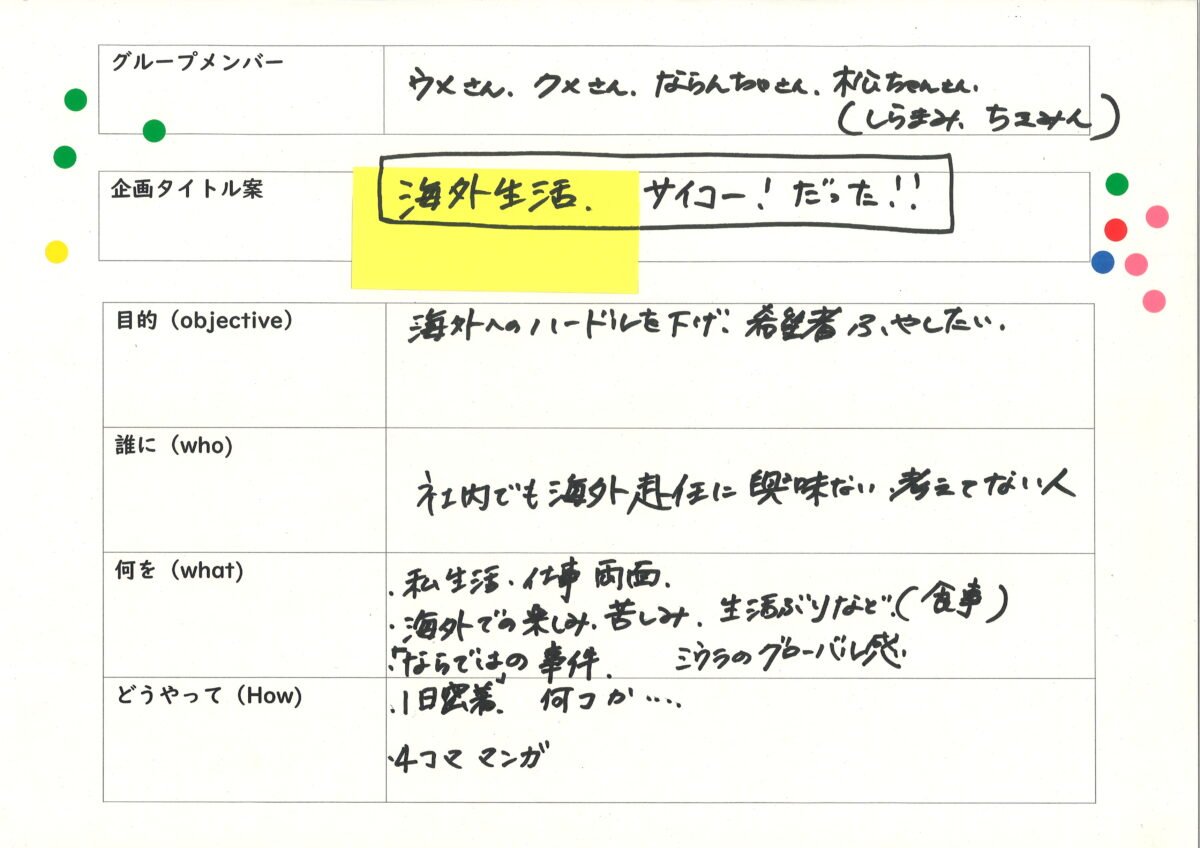 グループメンバー
ウメさん、クメさん、ならんちゃさん、松ちゃんさん、
(しらまみ、ちエみん)
企画タイトル案
海外生活、サイコー!だった!!
目的(objective)
海外へのハードルを下げ、希望者ふやしたい。
誰に(who)
社内でも海外赴任に興味ない、考えてない人
何を(what)
・私生活・仕事両面、
・海外での楽しみ、苦しみ、生活ぶりなど、(食事)
・"ならではの事件、 ミウラのグローバル感
どうやって(How)
・1日密着、何コか…
・4コママンガ